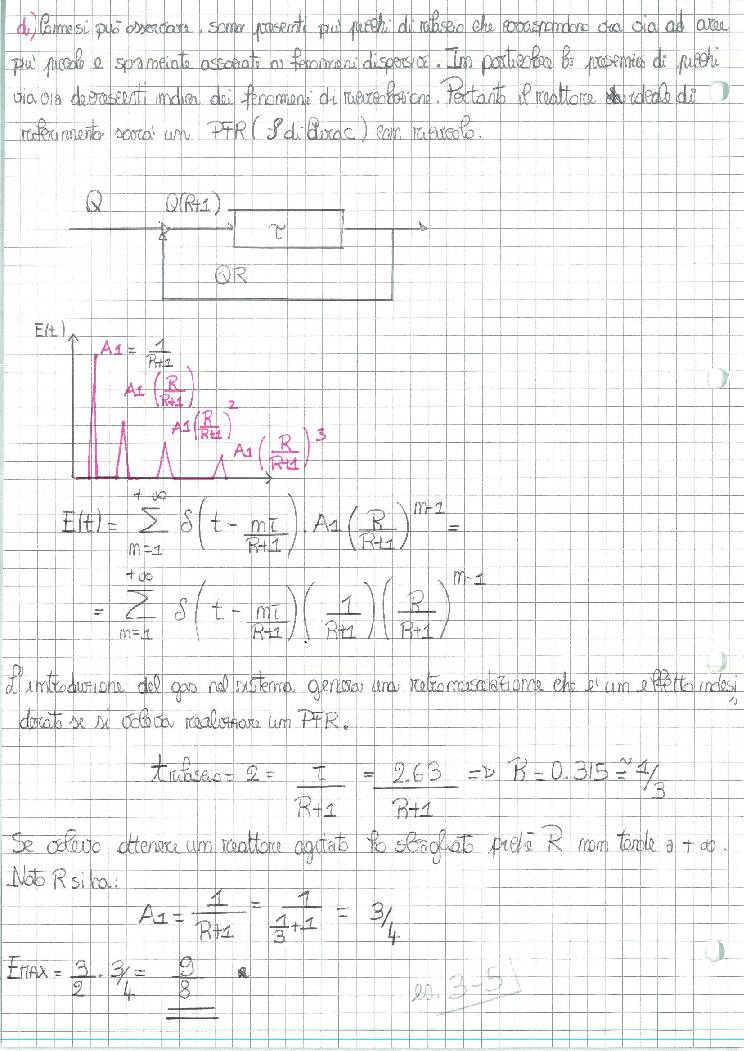 d) Come si può osservare, sono presenti più picchi di rilascio che corrispondono via via ad aree
più piccole e sparpagliate associate ai fenomeni dispersivi. In particolare la presenza di picchi
via via decrescenti indica dei fenomeni di ricircolazione. Pertanto il reattore ideale di
riferimento sarà un PFR (δ di Dirac) con ricircolo.
Q Q(R+1)
τ
QR
E(t)
A1 = 1/(R+1)
A1 (R/(R+1))
A1 (R/(R+1))^2
A1 (R/(R+1))^3
E(t) = Σ_{m=1}^{+∞} δ(t - mτ/(R+1)) · A1 (R/(R+1))^{m-1} =
= Σ_{m=1}^{+∞} δ(t - mτ/(R+1)) (1/(R+1)) (R/(R+1))^{m-1}
L'introduzione del gas nel sistema genera una retromiscelazione che è un effetto indesi
derato se si voleva realizzare un PFR.
t rilascio = 2 = τ/(R+1) = 2.63/(R+1) => R = 0.315 ≅ 1/3
Se volevo ottenere un reattore agitato ho sbagliato perchè R non tende a +∞.
Noto R si ha:
A1 = 1/(R+1) = 1/(1/3+1) = 3/4
EMAX = 3/2 · 3/4 = 9/8
es. 3-5